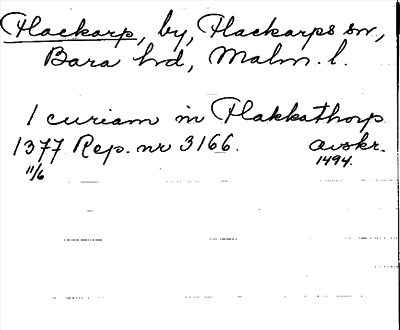 Flackarp, by, Flackarps sn,
Bara hd, Malm. l.
1 curiam in Flakkathorp
1377 Rep. nr 3166. avskr.
11/6 1494.